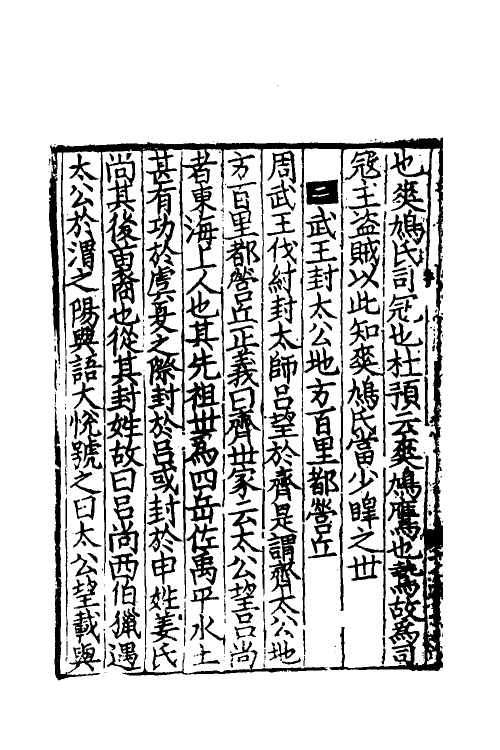 也爽鳩氏司冦也杜預云爽鳩鷹也鷙故爲司
冦主盗賊以此知爽鳩氏當少皥之世
二武王封太公地方百里都營丘
周武王伐紂封太師吕望於齊是謂齊太公地
方百里都營丘正義曰齊世家云太公望吕尚
者東海上人也其先祖世爲四岳佐禹平水土
甚有功於虞夏之際封於吕或封於申姓姜氏
尚其後苗裔也從其封姓故曰吕尚西伯獵遇
太公於渭之陽與語大悅號之曰太公望載與